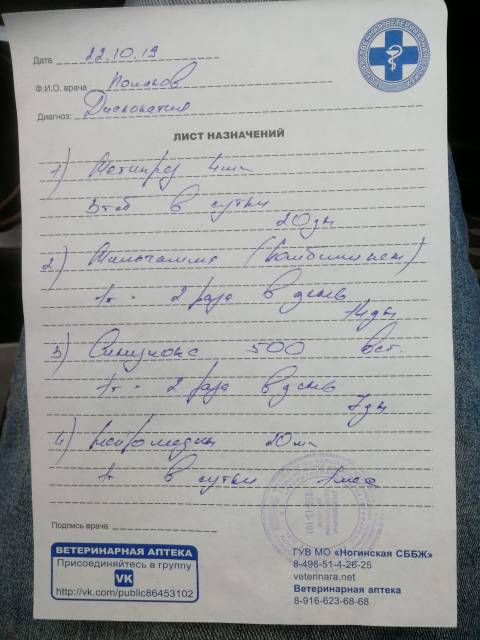 ГОСУДАРСТВЕННАЯ ВЕТЕРИНАРНАЯ СЛУЖБА
Дата 22.10.19
Ф.И.О. врача Поляков
Диагноз: Дископатия
ЛИСТ НАЗНАЧЕНИЙ
1) Метипред 4мг
3 таб в сутки
20дн
2) Мильгамма (Комбилипен)
1т - 2 раза в день
14дн
3) 500 вст.
1т - 2 раза в день
7дн
4) Нейромидин 20мг
1т в сутки 1мес
Подпись врача
ВЕТЕРИНАРНАЯ АПТЕКА
Присоединяйтесь в группу
VK
http://vk.com/public86453102
ГУВ МО «Ногинская СББЖ»
8-496-51-4-26-25
veterinara.net
Ветеринарная аптека
8-916-623-68-68